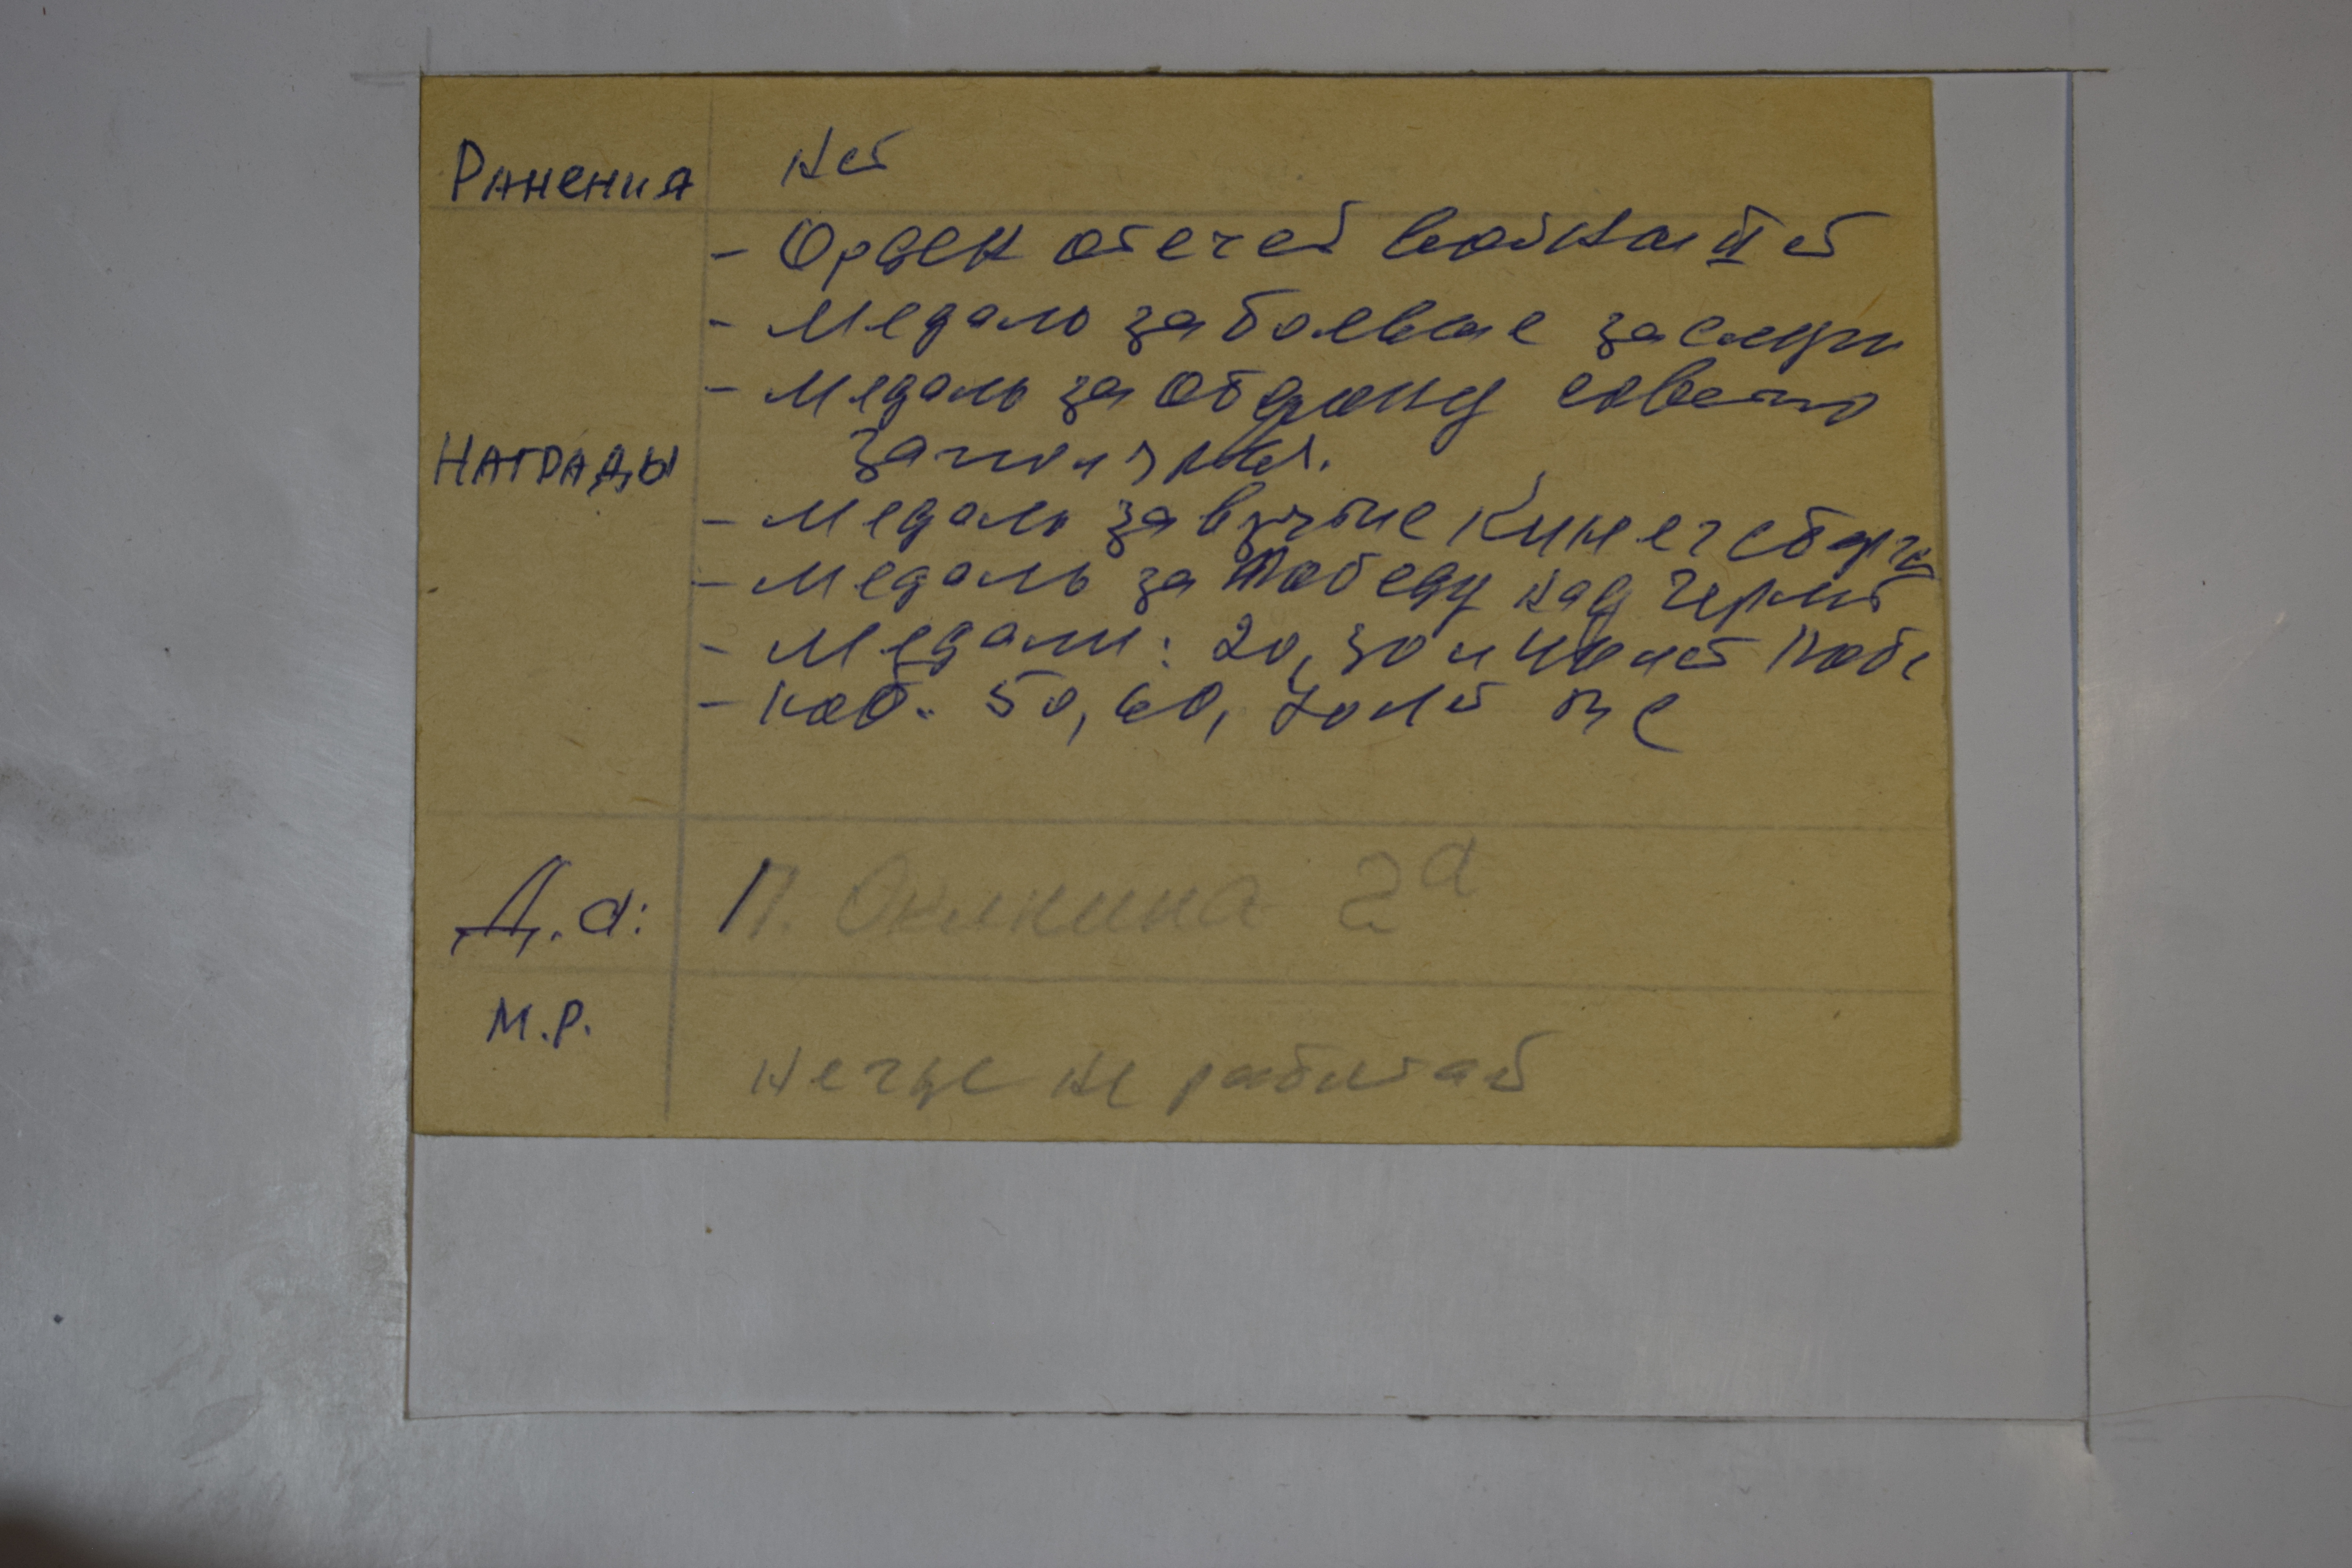 Ранения нет
- Орден отечес войны II ст
- Медаль за боевые заслуги
- Медаль за оборону советс
Награды заполярья.
- Медаль за взятие Кинегсберга
- Медаль за Победу над Герм
- Медали: 20, 30 и 40 лет Побе
- юоб. 50, 60, 70 лет ВС
Д.а: П. 2а
М.Р.
негде не работает